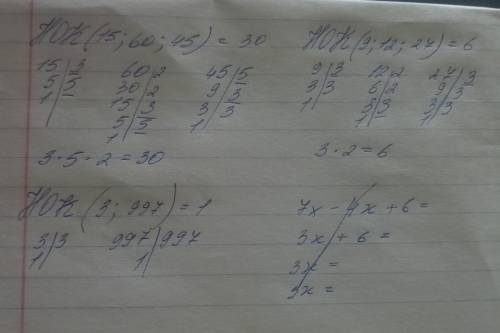 НОК(15; 60; 45) = 30
15 | 3
5 | 5
1 |
60 | 2
30 | 2
15 | 3
5 | 5
1 |
45 | 5
9 | 3
3 | 3
1 |
3 · 5 · 2 = 30
НОК(9; 12; 27) = 6
9 | 3
3 | 3
1 |
12 | 2
6 | 2
3 | 3
1 |
27 | 3
9 | 3
3 | 3
1 |
3 · 2 = 6
НОК(3; 997) = 1
3 | 3
1 |
997 | 997
1 |
7x - 4x + 6 =
3x + 6 =
3x =
3x =